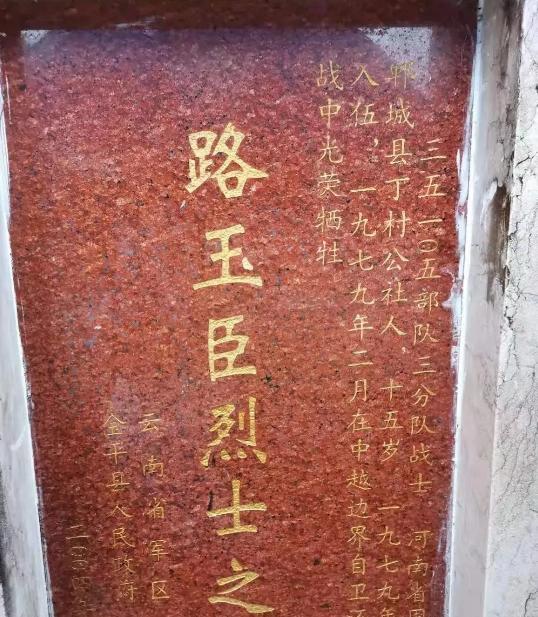 三五一〇五部队三分队战士 河南省周
郸城县丁村公社人，十五岁 一九七九年
入伍，一九七九年二月在中越边界自卫
战中光荣牺牲
路玉臣烈士之
云南省军区
金平县人民政府
二〇〇四年